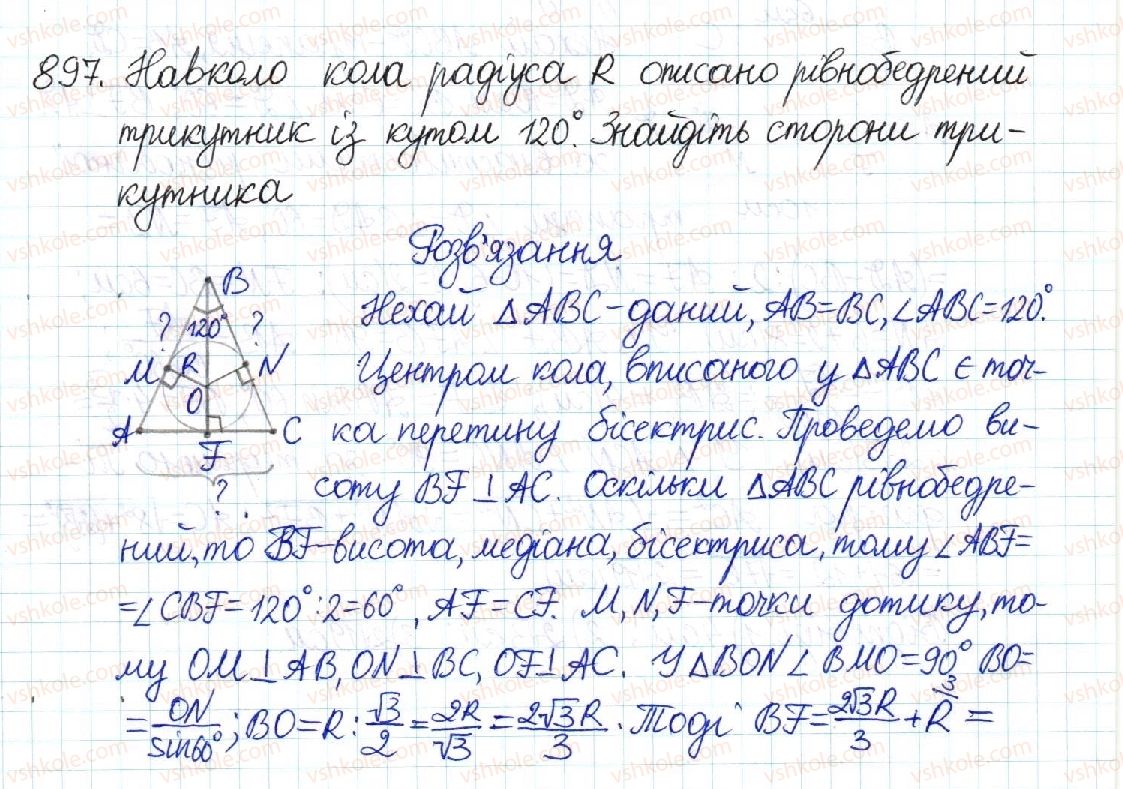 897. Навколо кола радіуса R описано рівнобедрений
трикутник із кутом 120°. Знайдіть сторони три-
кутника
Розв'язання
B
? 120° ?
M R N
O
A C
F
?
Нехай △ABC - даний, AB=BC, ∠ABC=120°.
Центром кола, вписаного у △ABC є точ-
ка перетину бісектрис. Проведемо ви-
соту BF⊥AC. Оскільки △ABC рівнобедре-
ний, то BF-висота, медіана, бісектриса, тому ∠ABF=
=∠CBF=120°:2=60°, AF=CF. M, N, F-точки дотику, то-
му OM⊥AB, ON⊥BC, OF⊥AC. У △BON ∠BMO=90° BO=
=ON/sin60°; BO=R:√3/2=2R/√3=2√3R/3. Тоді BF=2√3R/3+R\3=
vshkole.com